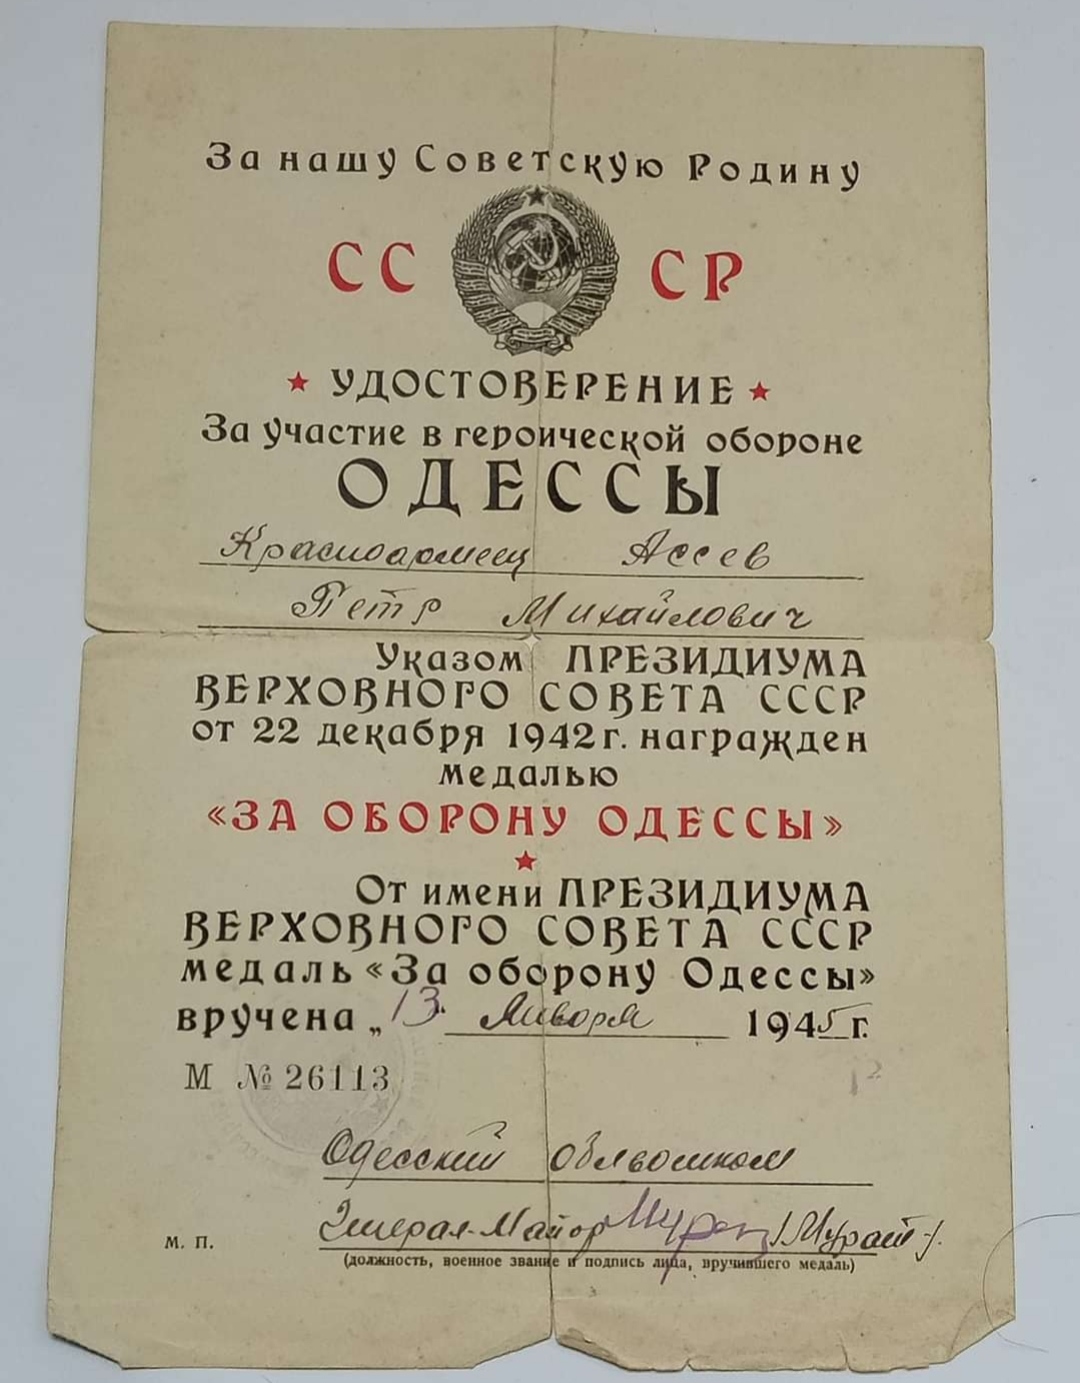 За нашу Советскую Родину
СССР
УДОСТОВЕРЕНИЕ
За участие в героической обороне
ОДЕССЫ
Красноармеец Ассев
Петр Михайлович
Указом ПРЕЗИДИУМА
ВЕРХОВНОГО СОВЕТА СССР
от 22 декабря 1942 г. награжден
медалью
«ЗА ОБОРОНУ ОДЕССЫ»
От имени ПРЕЗИДИУМА
ВЕРХОВНОГО СОВЕТА СССР
медаль «За оборону Одессы»
вручена „13. Января 1945 г.
М № 26113
Одесский облвоенком
Генерал-Майор /Мурат-/.
М. П.
(должность, военное звание и подпись лица, вручившего медаль)